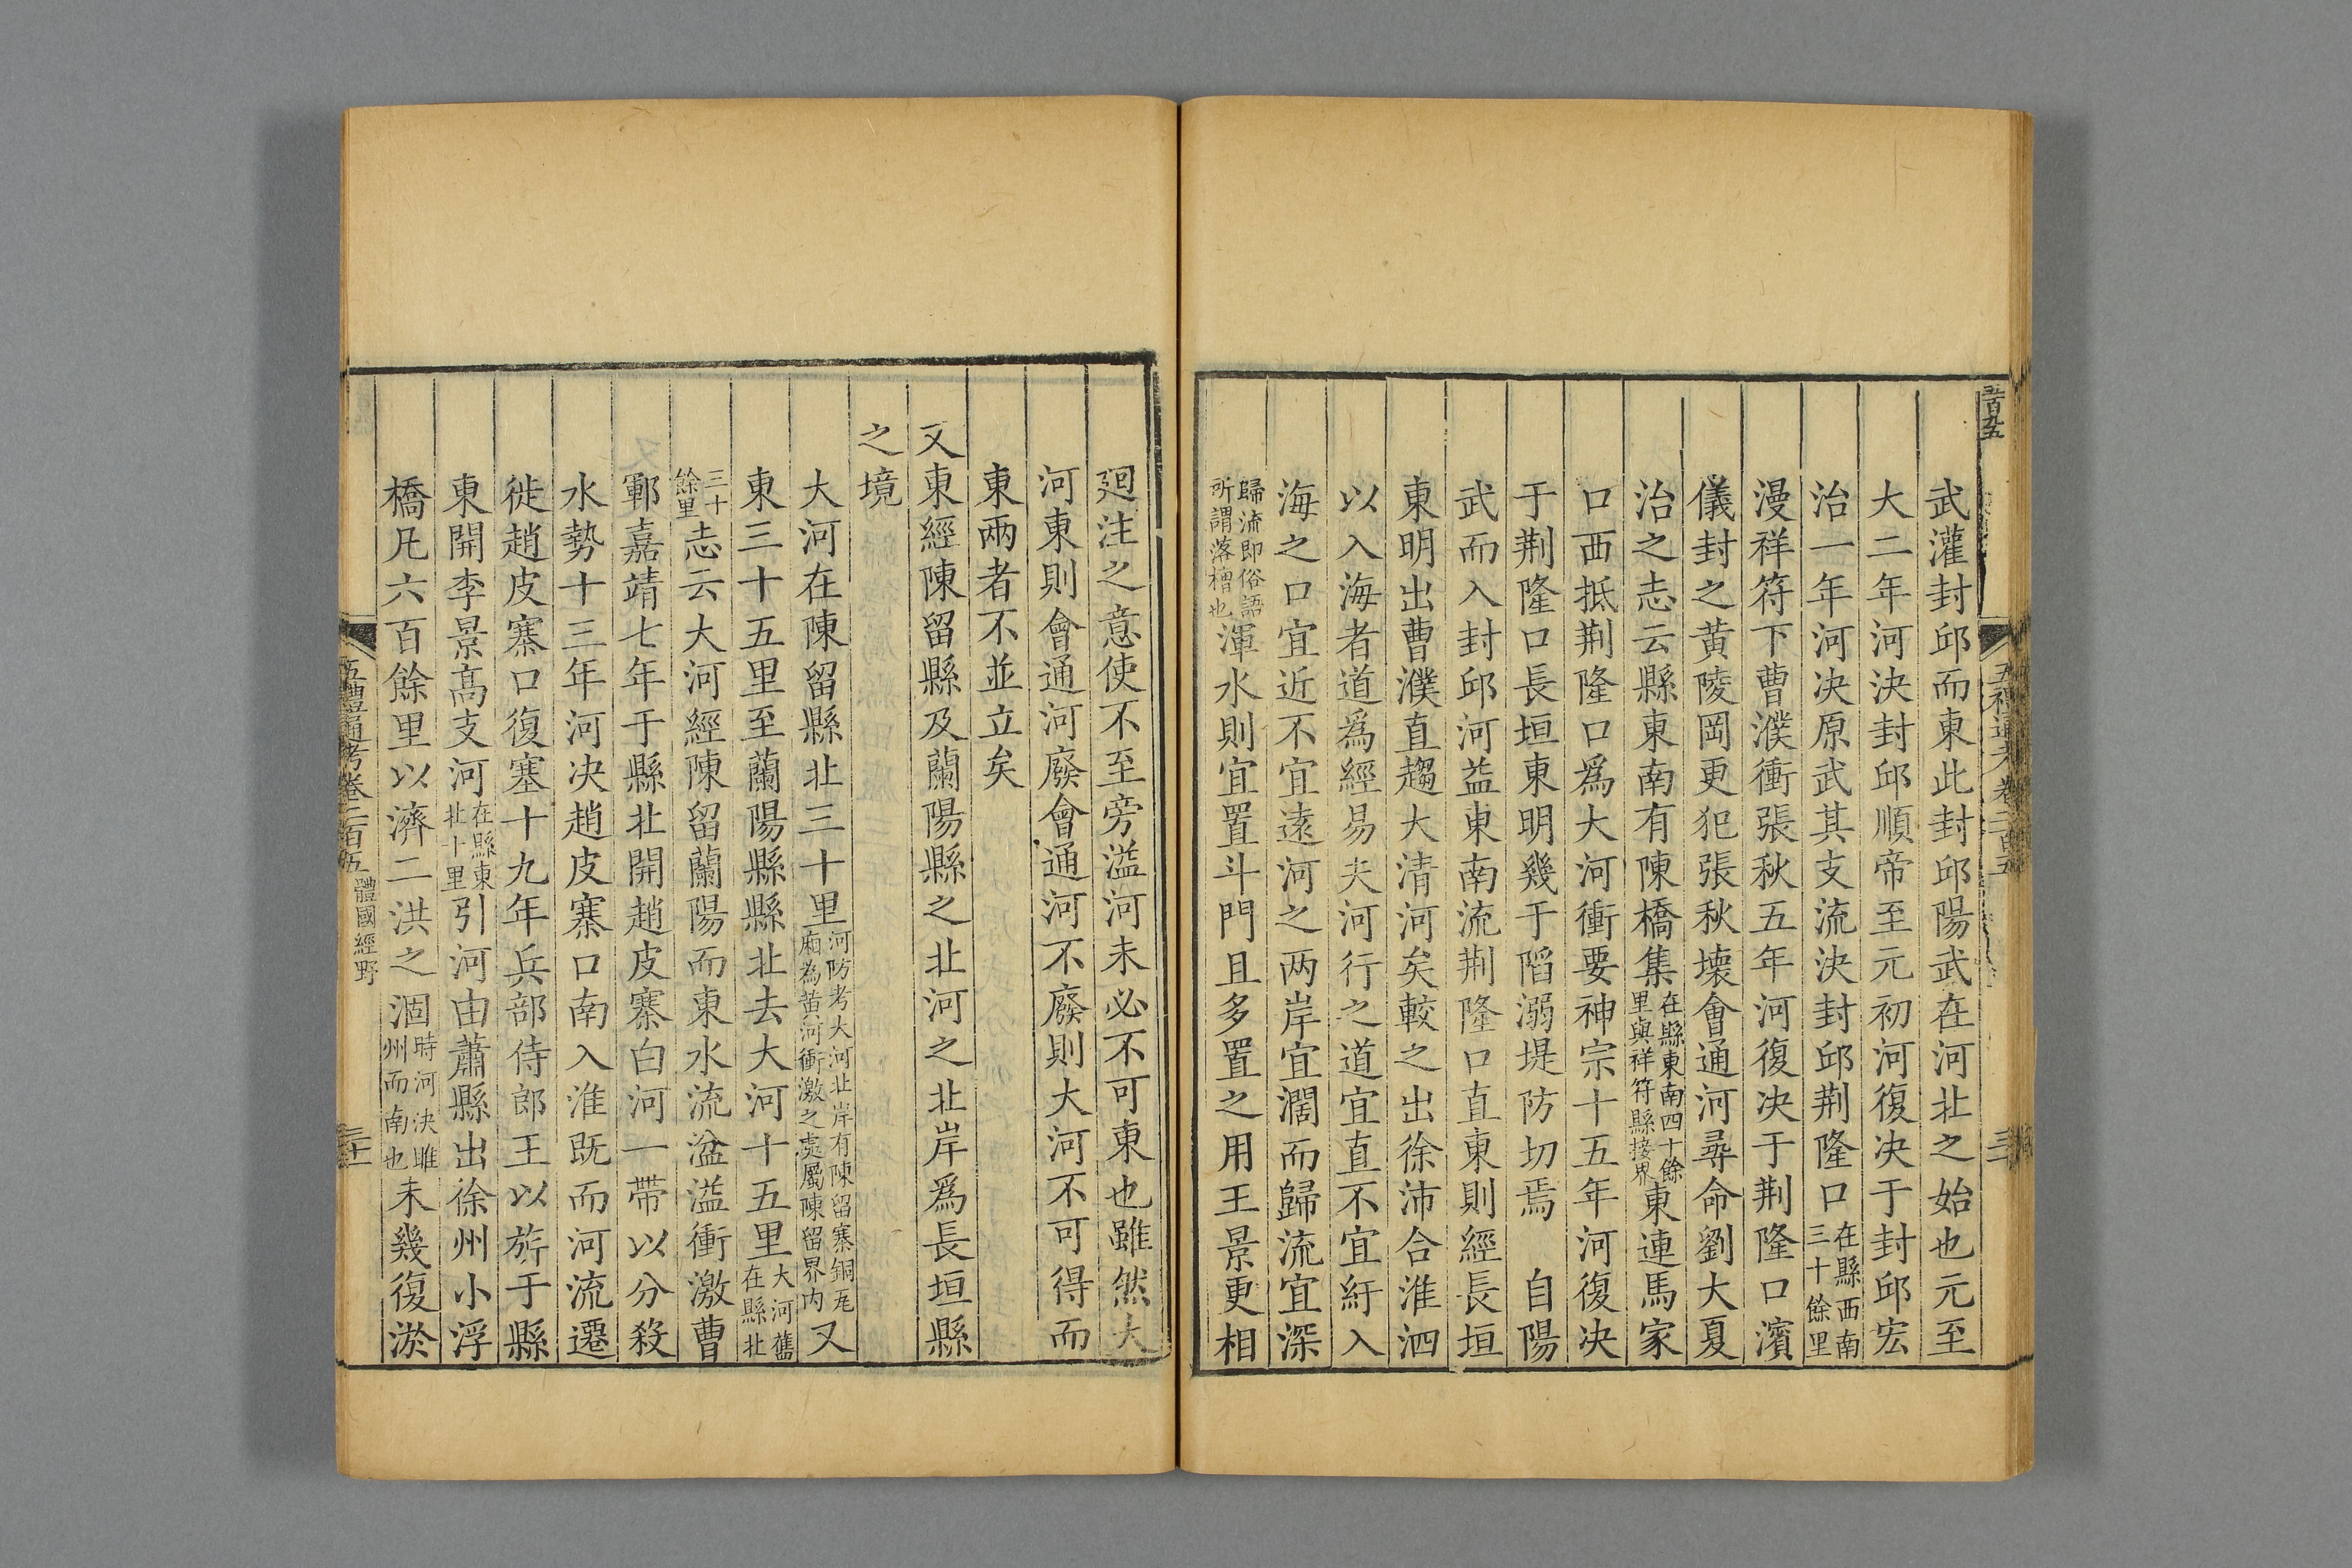 武灌封邱而東此封邱陽武在河北之始也元至
大二年河決封邱順帝至元初河復决于封邱宏
治一年河决原武其支流決封邱荆隆口在縣西南三十餘里
漫祥符下曹濮衝張秋五年河復决于荆隆口濱
儀封之黄陵岡更犯張秋壊會通河尋命劉大夏
治之志云縣東南有陳橋集在縣東南四十餘里與祥符縣接界東連馬家
口西抵荆隆口爲大河衝要神宗十五年河復决
于荆隆口長垣東明幾于䧟溺堤防切焉 自陽
武而入封邱河益東南流荆隆口直東則經長垣
東明出曹濮直趨大清河矣較之出徐沛合淮泗
以入海者道爲經易夫河行之道宜直不宜紆入
海之口宜近不宜遠河之两岸宜濶而歸流宜深
歸流即俗語所謂落槽也渾水則宜置斗門且多置之用王景更相
五禮通考卷二百五
廻注之意使不至旁溢河未必不可東也雖然大
河東則會通河廢會通河不廢則大河不可得而
東兩者不並立矣
又東經陳留縣及蘭陽縣之北河之北岸爲長垣縣
之境
大河在陳留縣北三十里河防考大河北岸有陳留寨銅瓦廂為黄河衝激之處屬陳留界内又
東三十五里至蘭陽縣縣北去大河十五里大河舊在縣北
三十餘里志云大河經陳留蘭陽而東水流湓溢衝激曹
鄆嘉靖七年于縣北開趙皮寨白河一帶以分殺
水勢十三年河决趙皮寨口南入淮既而河流遷
徙趙皮寨口復塞十九年兵部侍郎王以旂于縣
東開李景高支河在縣東北十里引河由蕭縣出徐州小浮
橋凡六百餘里以濟二洪之涸時河決睢州而南也未幾復淤
五禮通考卷二百五 體國經野